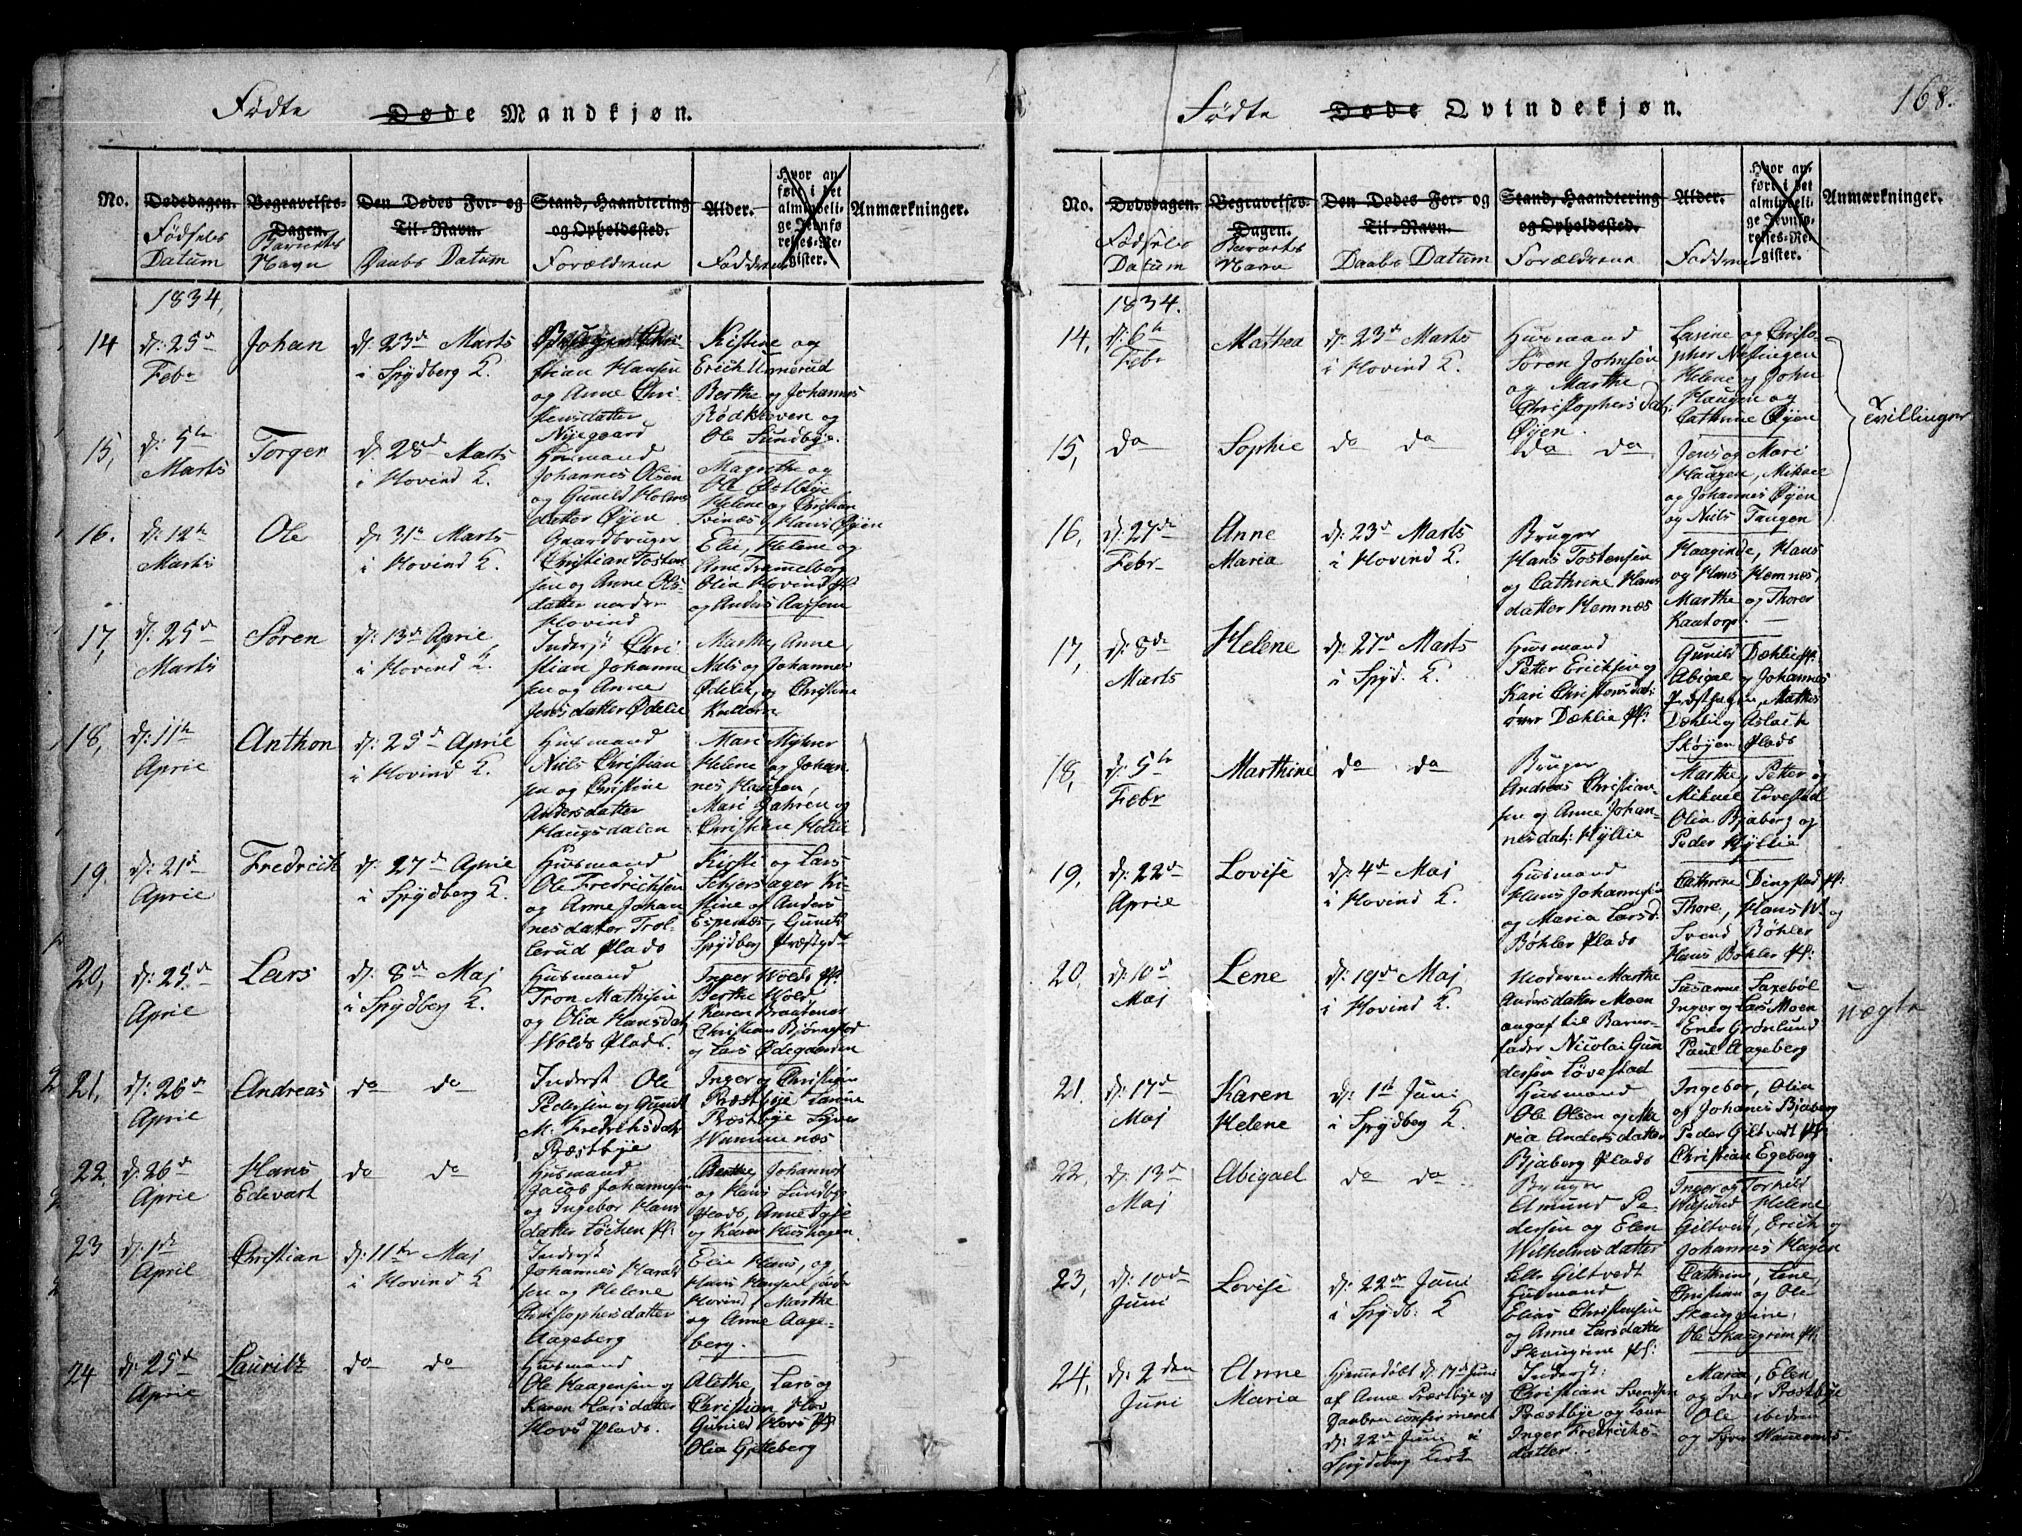 168.
Fødte Døde Mandkjøn.
No.
Dødsdagen.
Fødsels Datum
Begravelses-Dagen.
Barnets Navn
Den Dødes For- og Til-Navn.
Daabs Datum
Stand, Haandtering og Opholdssted.
Forældrene
Alder.
Faddrene
Hvor anført i det almindelige Jevnførelses-Register.
Anmærkninger.
1834.
14
d: 25d
Febr
Johan
d: 23d Marts
i Spydberg K.
stian Hansen
og Anne Christensdatter
Nyegaard
Kistine og
Erich Unnerud
Berthe og Johannes
Rødkleven og
Ole Lundbye.
15,
d: 5te
Marts
Torger
d: 28d Marts
i Hovind K.
Huusmand
Johannes Olsen
og Gunild Holms
datter Øyen
Magrethe og
Ole Østbye
Helene og Christian
Svines, Hans Øyen
16.
d: 12te
Marts
Ole
d: 31te Marts
i Hovind K.
Gaardbruger
Christian Tosten
sen og Anne Ols
datter nordre
Hovind
Elie, Helene og
Arne Trammelborg
Olia Hovind pl:
og Anders Aassen
17,
d: 25d
Marts
Søren
d: 13d April
i Hovind K.
Inderst Chri
stian Johanne
sen og Anne
Jensdatter Ødelie
Marthe, Anne
Niels og Johannes
Ødelie, og Christine
18,
d: 11te
April
Anthon
d: 25d April
i Hovind K.
Huusmand
Niels Christian
sen og Christine
Andersdatter
Haugsdalen
Mari Myhrer
Helene og Johan
nes Haugen,
Mari Jahren og
Christian Hollie
19.
d: 21d
April
Fredrich
d: 27d April
i Spydberg K.
Huusmand
Ole Fredrichsen
og Anne Johan
nesdatter Trol
lerud Plads
Kisti og Lars
Schjerslager Ki
stine og Anders
Espenæs, Gunild
Spydberg Præstgd
20,
d: 25d
April
Lars
d: 8de Maj
i Spydberg K.
Huusmand
Tron Mathisen
og Olia Hansdat
Wolds Plads.
Inger Wolds pl.
Berthe Wold
Karen Braatener
Christian Bjørnstad
og Lars Ødegaarden
21,
d: 26d
April
Andreas
do do
Inderst Ole
Pedersen og Gunil
M: Fredrichsdatr
Præstbye
Inger og Christian
Præstbye Larine
Præstbye Syver
Wammenæs
22.
d: 26d
April
Hans
Edevart
do do
Huusmand
Jacob Johannesen
og Ingebor Hans
datter Løchen pl:
Berthe, Johannes
og Hans Lundbye
Plads, Anne Dysie
og Karen Hushagen.
23
d: 1de
April
Christian
d: 11te Maj
i Hovind K
Inderst
Johannes Harald
sen og Helene
Christophersdatter
Aageberg
Elie Hans, og
Hans Hansen søndr
Hovind, Marthe
og Anne Aage-
berg.
24
d: 25d
April
Lauritz
do do
Huusmand
Ole Haagensen og
Karen Larsdatter
Hovs Plads.
Alethe, Lars og
Christian Hov
Gunild Hovs pl
Olia Gjetteberg
Fødte Døde Qvindekjøn.
No.
Dødsdagen.
Fødsels Datum
Begravelses-Dagen.
Barnets Navn
Den Dødes For- og Til-Navn.
Daabs Datum
Stand, Haandtering og Opholdssted.
Forældrene
Alder.
Faddrene
Hvor anført i det almindelige Jevnførelses-Register.
Anmærkninger.
1834.
14,
d: 6te
Febr
Mathea
d: 23d Marts
i Hovind K.
Huusmand
Søren Johnsen
og Marthe
Christophersdat:
Øyen.
Larine og Christo-
pher Næsingen
Helene og John
Haugen og
Cathrine Øyen
Tvillinger
15,
do
Sophie
do do
do do
Jens og Mari
Haugen, Mikael
og Johannes Øyen
og Niels Taugen
16,
d: 27de
Febr
Anne
Maria
d: 23d Marts
i Hovind K.
Bruger
Hans Tostensen
og Cathrine Hans
datter Hemnæs
Haaginde, Hans
og Hans Hemnæs,
Marthe og Thorer
Kaatorp.
17,
d: 8de
Marts
Helene
d: 27d Marts
i Spyd. K.
Huusmand
Petter Erichsen og
Kari Christensdat:
øvre Dæhlie pl:
Gunild Dæhlie pl:
Abigael og Johannes
Præsthagen, Mathis
Dæhli og Aslach
Skøyen plads
18,
d: 5te
Febr
Marthine
do do
Bruger
Andreas Christian-
sen og Anne Johan-
nesdat: Hyllie
Marthe, Petter og
Mikael Lovestad
Olia Bjaberg og
Peder Hyllie
19,
d: 22de
April
Lovise
d: 4d Maj
i Hovind K.
Huusmand
Hans Johannesen
og Maria Larsd.
Bøhler Plads
Cathrine Dingstad pl:
Thore, Hans W. og
Svend Bøhler
Hans Bøhler pl:
20,
d: 10d
Maj
Lene
d: 19d Maj
i Hovind K.
Moderen Marthe
Andersdatter Moen
angaf til Barne-
fader Nicolai Gun
dersen Løvestad
Susanne Laxebøl
Inger og Lars Moen
Ener Grønlund
Paul Aageberg
uægte
21.
d: 17d
Maj
Karen
Helene
d: 1st Juni
i Spydberg K.
Huusmand
Ole Olsen og Ma
ria Andersdatter
Bjaberg Plads
Ingebor, Olia
og Johanes Bjaberg
Peder Giltvedt pl.
Christian Egeberg.
22,
d: 13d
Maj
Abigael
do do
Bruger
Amund Pe
dersen og Elen
Wilhelmsdatter
Elle Giltvedt
Inger og Torhild
Wilsund Helene
Giltvedt, Erich og
Johannes Hagen
23,
d: 10de
Juni
Lovise
d: 22de Juni
i Spydb: K
Huusmand
Elias Christensen
og Anne Larsdatter
Skaugrine pl:
Cathrine, Lene
Christian og Ole
Skaugrine,
Ole Skaugrim pl:
24,
d: 2den
Juni
Anne
Maria
hjemmedøbt d: 17d Juni
af Anne Præstbye og
Daaben confirmeret
d: 22de Juni i
Spydeberg Kirke
Inderst:
Christian Svendsen
Præstbye og Kone
Inger Fredrichs-
datter.
Maria, Elen
og Iver Præstbye
Ole ibidem
og Syver Wammenæs